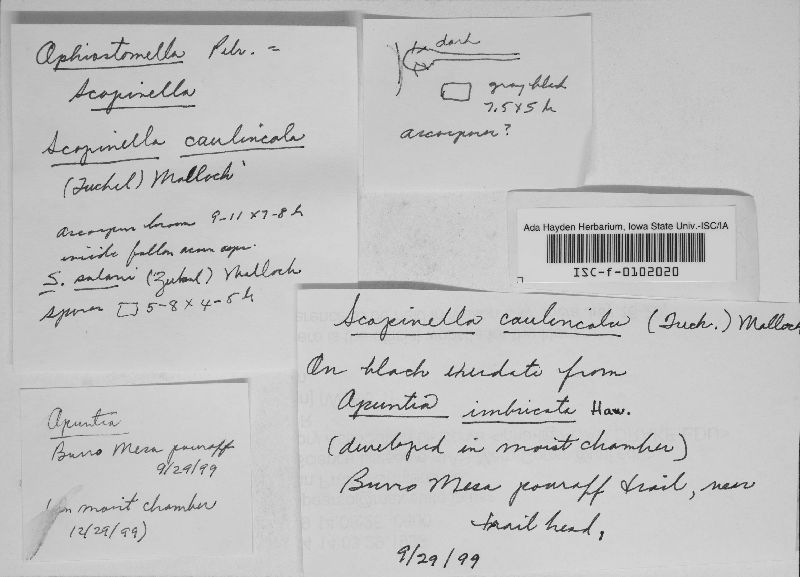 Ophiostomella Petr. =
Scopinella
Scopinella caulincola
(Fuckel) Malloch
ascospores brown 9-11 x 7-8 µ
inside fallen acorn cups.
S. solani (Zukal) Malloch
spores 5-8 x 4-5 µ
dark
gray black
7.5 x 5 µ
ascospores?
Ada Hayden Herbarium, Iowa State Univ.-ISC/IA
ISC-f-0102020
Scopinella caulincola (Fuck.) Malloch
On black exudate from
Opuntia imbricata Haw.
(developed in moist chamber)
Burro Mesa pouroff trail, near
trail head,
9/29/99
Opuntia
Burro Mesa pouroff
9/29/99
(in moist chamber
12/29/99)